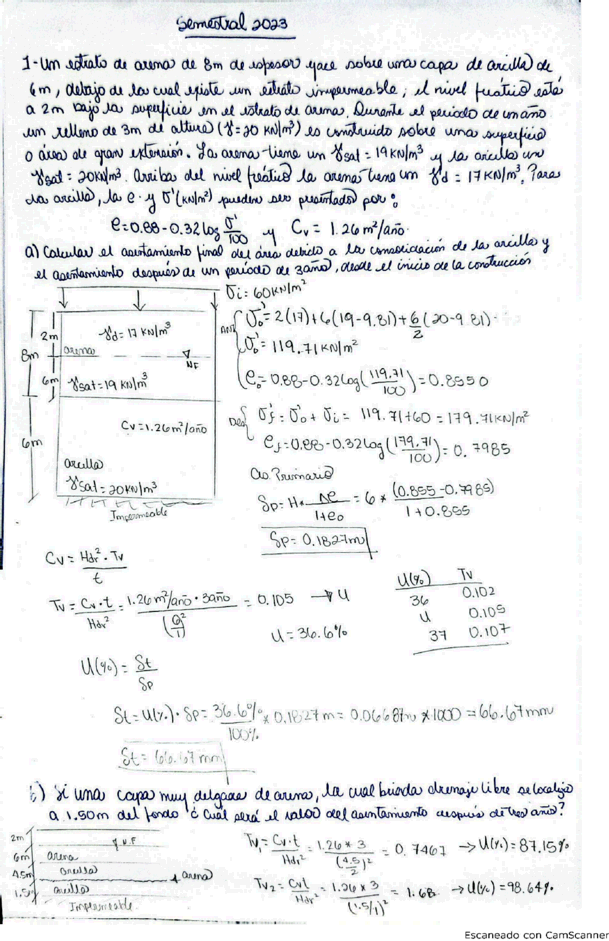 Semestral 2023
1-Un estrato de arena de 8m de espesor yace sobre una capa de arcilla de
6m, debajo de la cual existe un estrato impermeable; el nivel freático está
a 2m bajo la superficie en el estrato de arena. Durante el periodo de un año
un relleno de 3m de altura (γ=20 KN/m³) es construido sobre una superficie
o área de gran extensión. La arena tiene un γsat = 19KN/m³ y la arcilla un
γsat = 20KN/m³. Arriba del nivel freático la arena tiene un γd = 17 KN/m³. Para
la arcilla, la e y σ'(KN/m²) pueden ser presentados por:
e=0.88-0.32log σ'/100 y Cv = 1.26 m²/año
a) Calcular el asentamiento final del área debido a la consolidación de la arcilla y
el asentamiento después de un periodo de 3año, desde el inicio de la construcción
σi = 60KN/m²
2m
γd = 17 KN/m³
8m
arena
NF
6m
γsat = 19 KN/m³
Cv=1.26m²/año
6m
arcilla
γsat = 20KN/m³
Impermeable
σ'o = 2(17)+6(19-9.81)+6/2(20-9.81)
σ'o = 119.71KN/m²
eo = 0.88-0.32log(119.71/100) = 0.8550
σ'f = σ'o + σi = 119.71+60 = 179.71KN/m²
ef = 0.88-0.32log(179.71/100) = 0.7985
As Primario
Sp = H* Δe/1+eo = 6 * (0.855-0.7985)/1+0.855
Sp = 0.1827m
Cv = Hdr²·Tv/t
Tv = Cv·t/Hdr² = 1.26m²/año·3año/(6/1)² = 0.105 → U
U = 36.6%
U(%) Tv
36 0.102
U 0.105
37 0.107
U(%) = St/Sp
St = U(%)·Sp = 36.6%/100% * 0.1827m = 0.06687m *1000 = 66.67mm
St = 66.67mm
b) Si una capa muy delgada de arena, la cual brinda drenaje libre se localiza
a 1.50m del fondo ¿Cuál será el valor del asentamiento después de tres año?
2m
N.F
6m arena
4.5m arcilla
arena
1.5m arcilla
Impermeable
Tv₁ = Cv·t/Hdr² = 1.26*3/(4.5/2)² = 0.7467 → U(%) = 87.15%
Tv₂ = Cv·t/Hdr² = 1.26*3/(1.5/1)² = 1.68 → U(%) = 98.64%
Escaneado con CamScanner